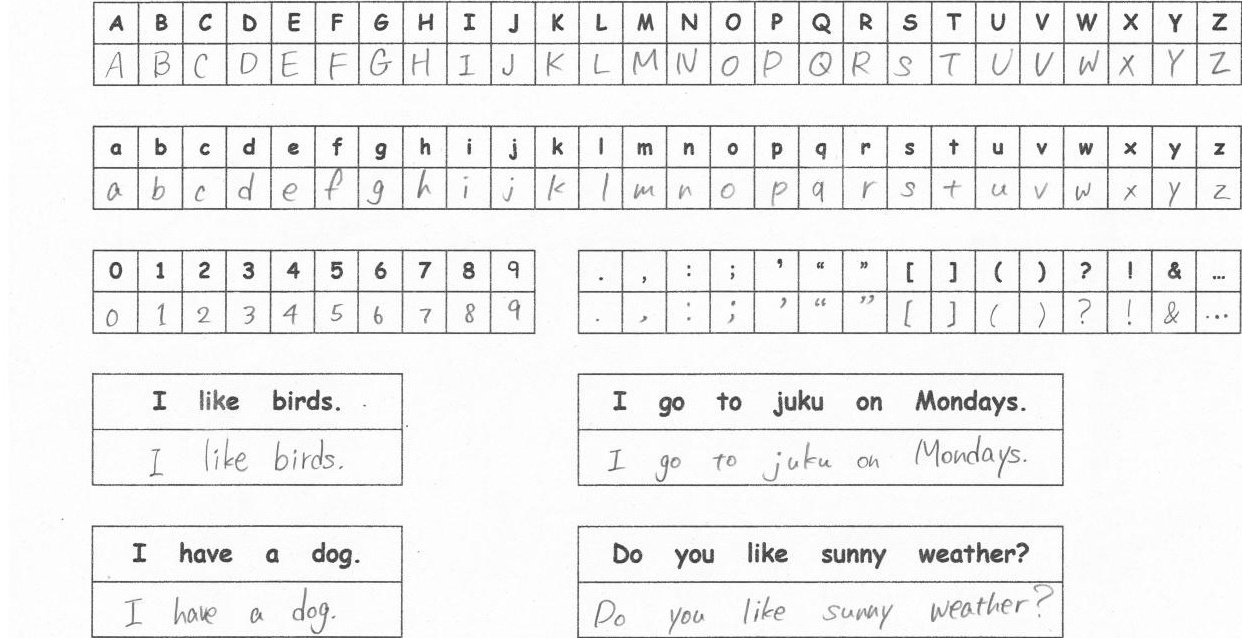 A B C D E F G H I J K L M N O P Q R S T U V W X Y Z
A B C D E F G H I J K L M N O P Q R S T U V W X Y Z
a b c d e f g h i j k l m n o p q r s t u v w x y z
a b c d e f g h i j k l m n o p q r s t u v w x y z
0 1 2 3 4 5 6 7 8 9
0 1 2 3 4 5 6 7 8 9
. , : ; ’ “ ” [ ] ( ) ? ! & ...
. , : ; ’ “ ” [ ] ( ) ? ! & ...
I like birds.
I like birds.
I go to juku on Mondays.
I go to juku on Mondays.
I have a dog.
I have a dog.
Do you like sunny weather?
Do you like sunny weather?